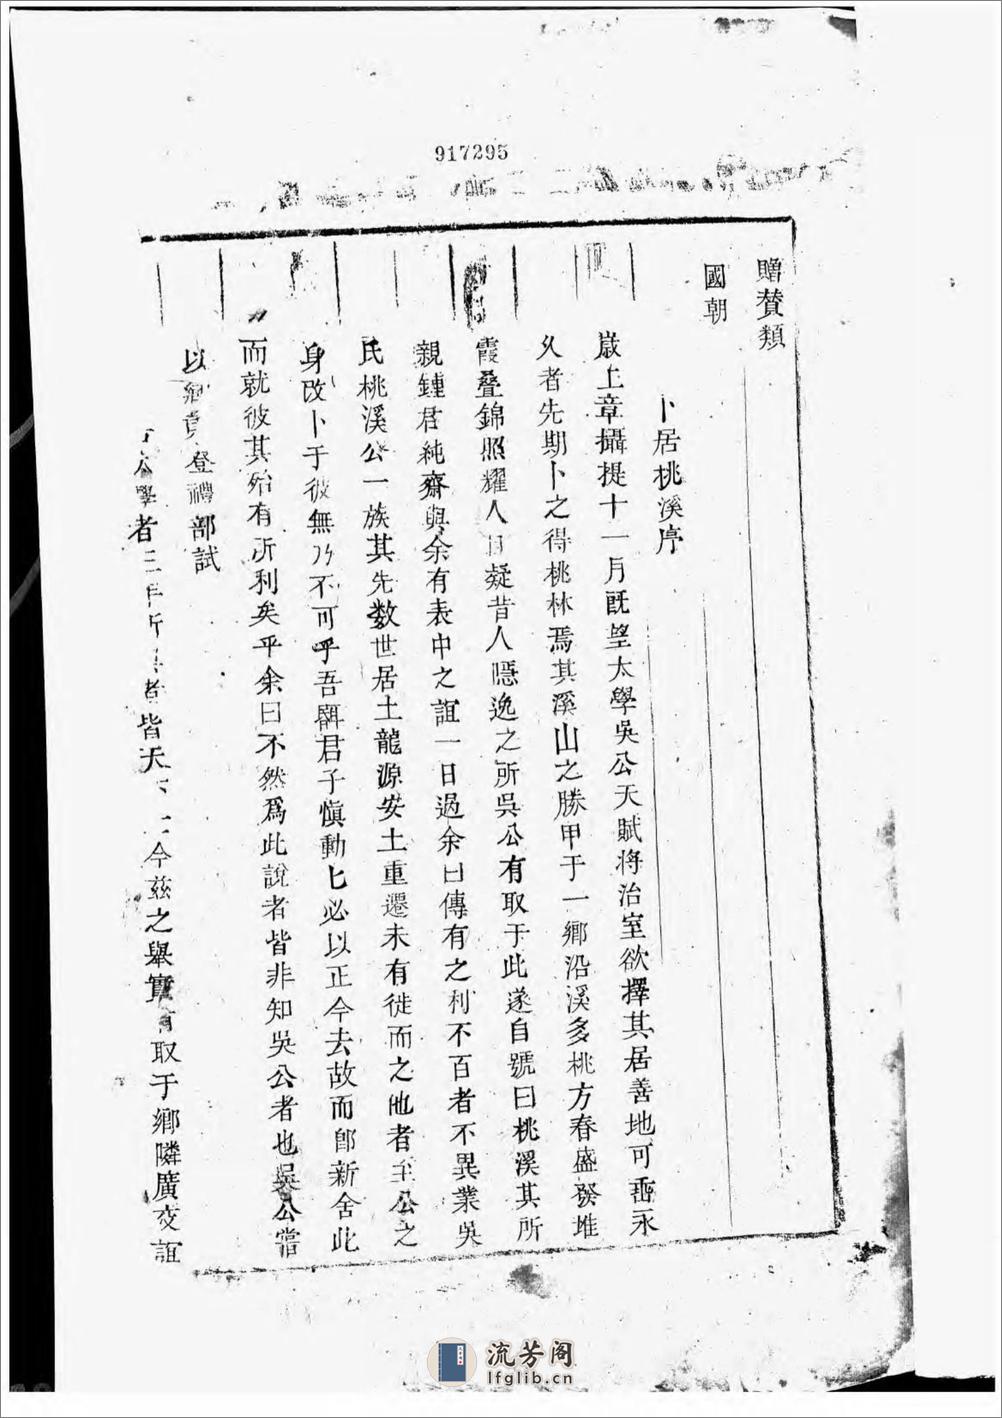 917295
贈賛類
國朝
卜居桃溪序
嵗上章攝提十一月既望太學吳公天賦将治室欲擇其居善地可垂永
久者先期卜之得桃林焉其溪山之勝甲于一鄉沿溪多桃方春盛發堆
霞叠錦照耀人目疑昔人隱逸之所吳公有取于此遂自號曰桃溪其所
親鍾君純齋與余有表中之誼一日過余曰傳有之利不百者不異業吳
氏桃溪公一族其先数世居土龍源安土重遷未有徙而之他者至公之
身改卜于彼無乃不可乎吾聞君子慎動匕必以正今去故而卽新舍此
而就彼其殆有所利矣乎余曰不然爲此說者皆非知吳公者也吳公嘗
以 登禮部試
學者三年所 者皆天 今兹之舉實有取于鄉隣廣交誼
流芳阁
lfglib.cn